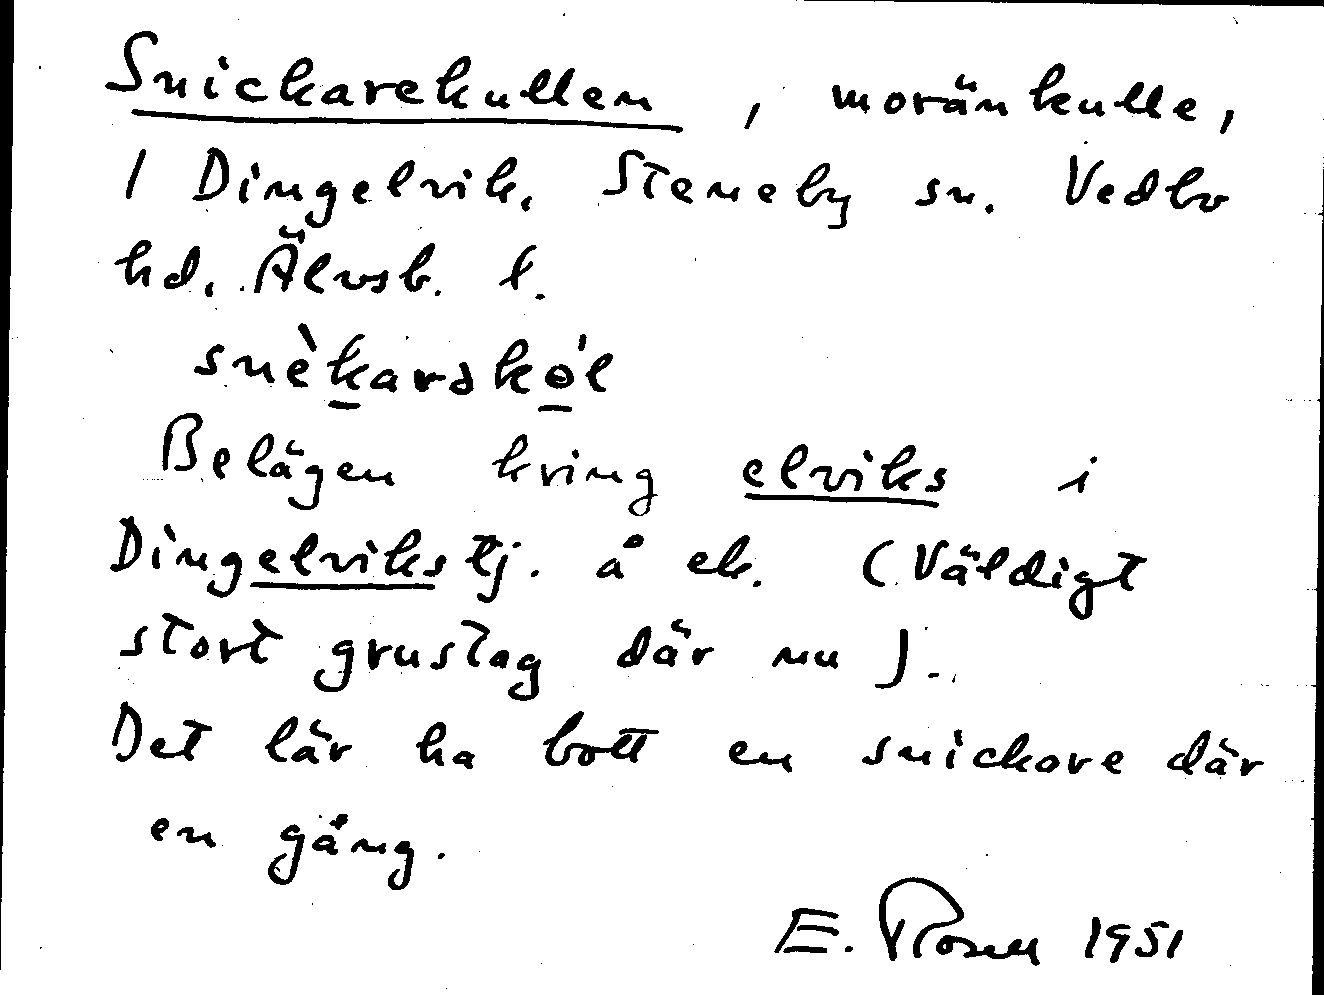 Snickarekullen, moränkulle,
/ Dingelvik, Steneby sn. Vedbo
hd. Älvsb. l.
snèkarəkɵ'l
Belägen kring elviks i
Dingelvikstj. å ek. (Väldigt
stort grustag där nu).
Det lär ha bott en snickare där
en gång.
E. Rosell 1951